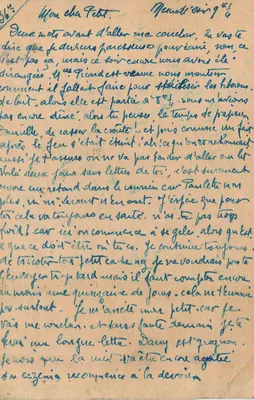 Mon cher Petit.
Deux mots avant d'aller me coucher. Tu vas te
dire que je deviens paresseuse pour écrire, non, ce
n'est pas ça, mais ce soir encore nous avons été
dérangées. Mme Picard est venue nous montrer
comment il fallait faire pour stériliser les biberons
de lait, alors elle est partie à 8h, nous n'avions
pas encore dîné, alors tu penses le temps de
de casser la croûte! et puis comme un fait
exprès le feu s'était éteint,
aussi je t'assure on ne va pas tarder d'aller au lit
Voilà deux jours sans lettre de toi, c'est surement
encore un retard dans le courrier car Paulette non
plus, ni n'en ont. J'espère que pour
toi cela va toujours en santé, n'as tu pas trop
froid? car ici on commence à se geler, alors qu'est
ce que ce doit être où tu es. Je continue toujours
de tricoter ton petit je ne voudrais pas te
l'envoyer trop tard mais il faut compter encore
au moins une quinzaine de jours, cela ne t'ennuie
pas surtout. Je m'arrête mon petit car je
vais me coucher et sans faute demain je te
ferai une longue lettre. Dany est grognon.
Je crois que la nuit va être encore agitée
Son eczéma recommence à la